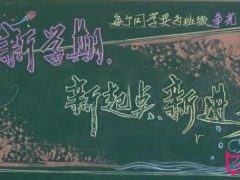 每个同学是为班级争光
新学期、
新起点、新进